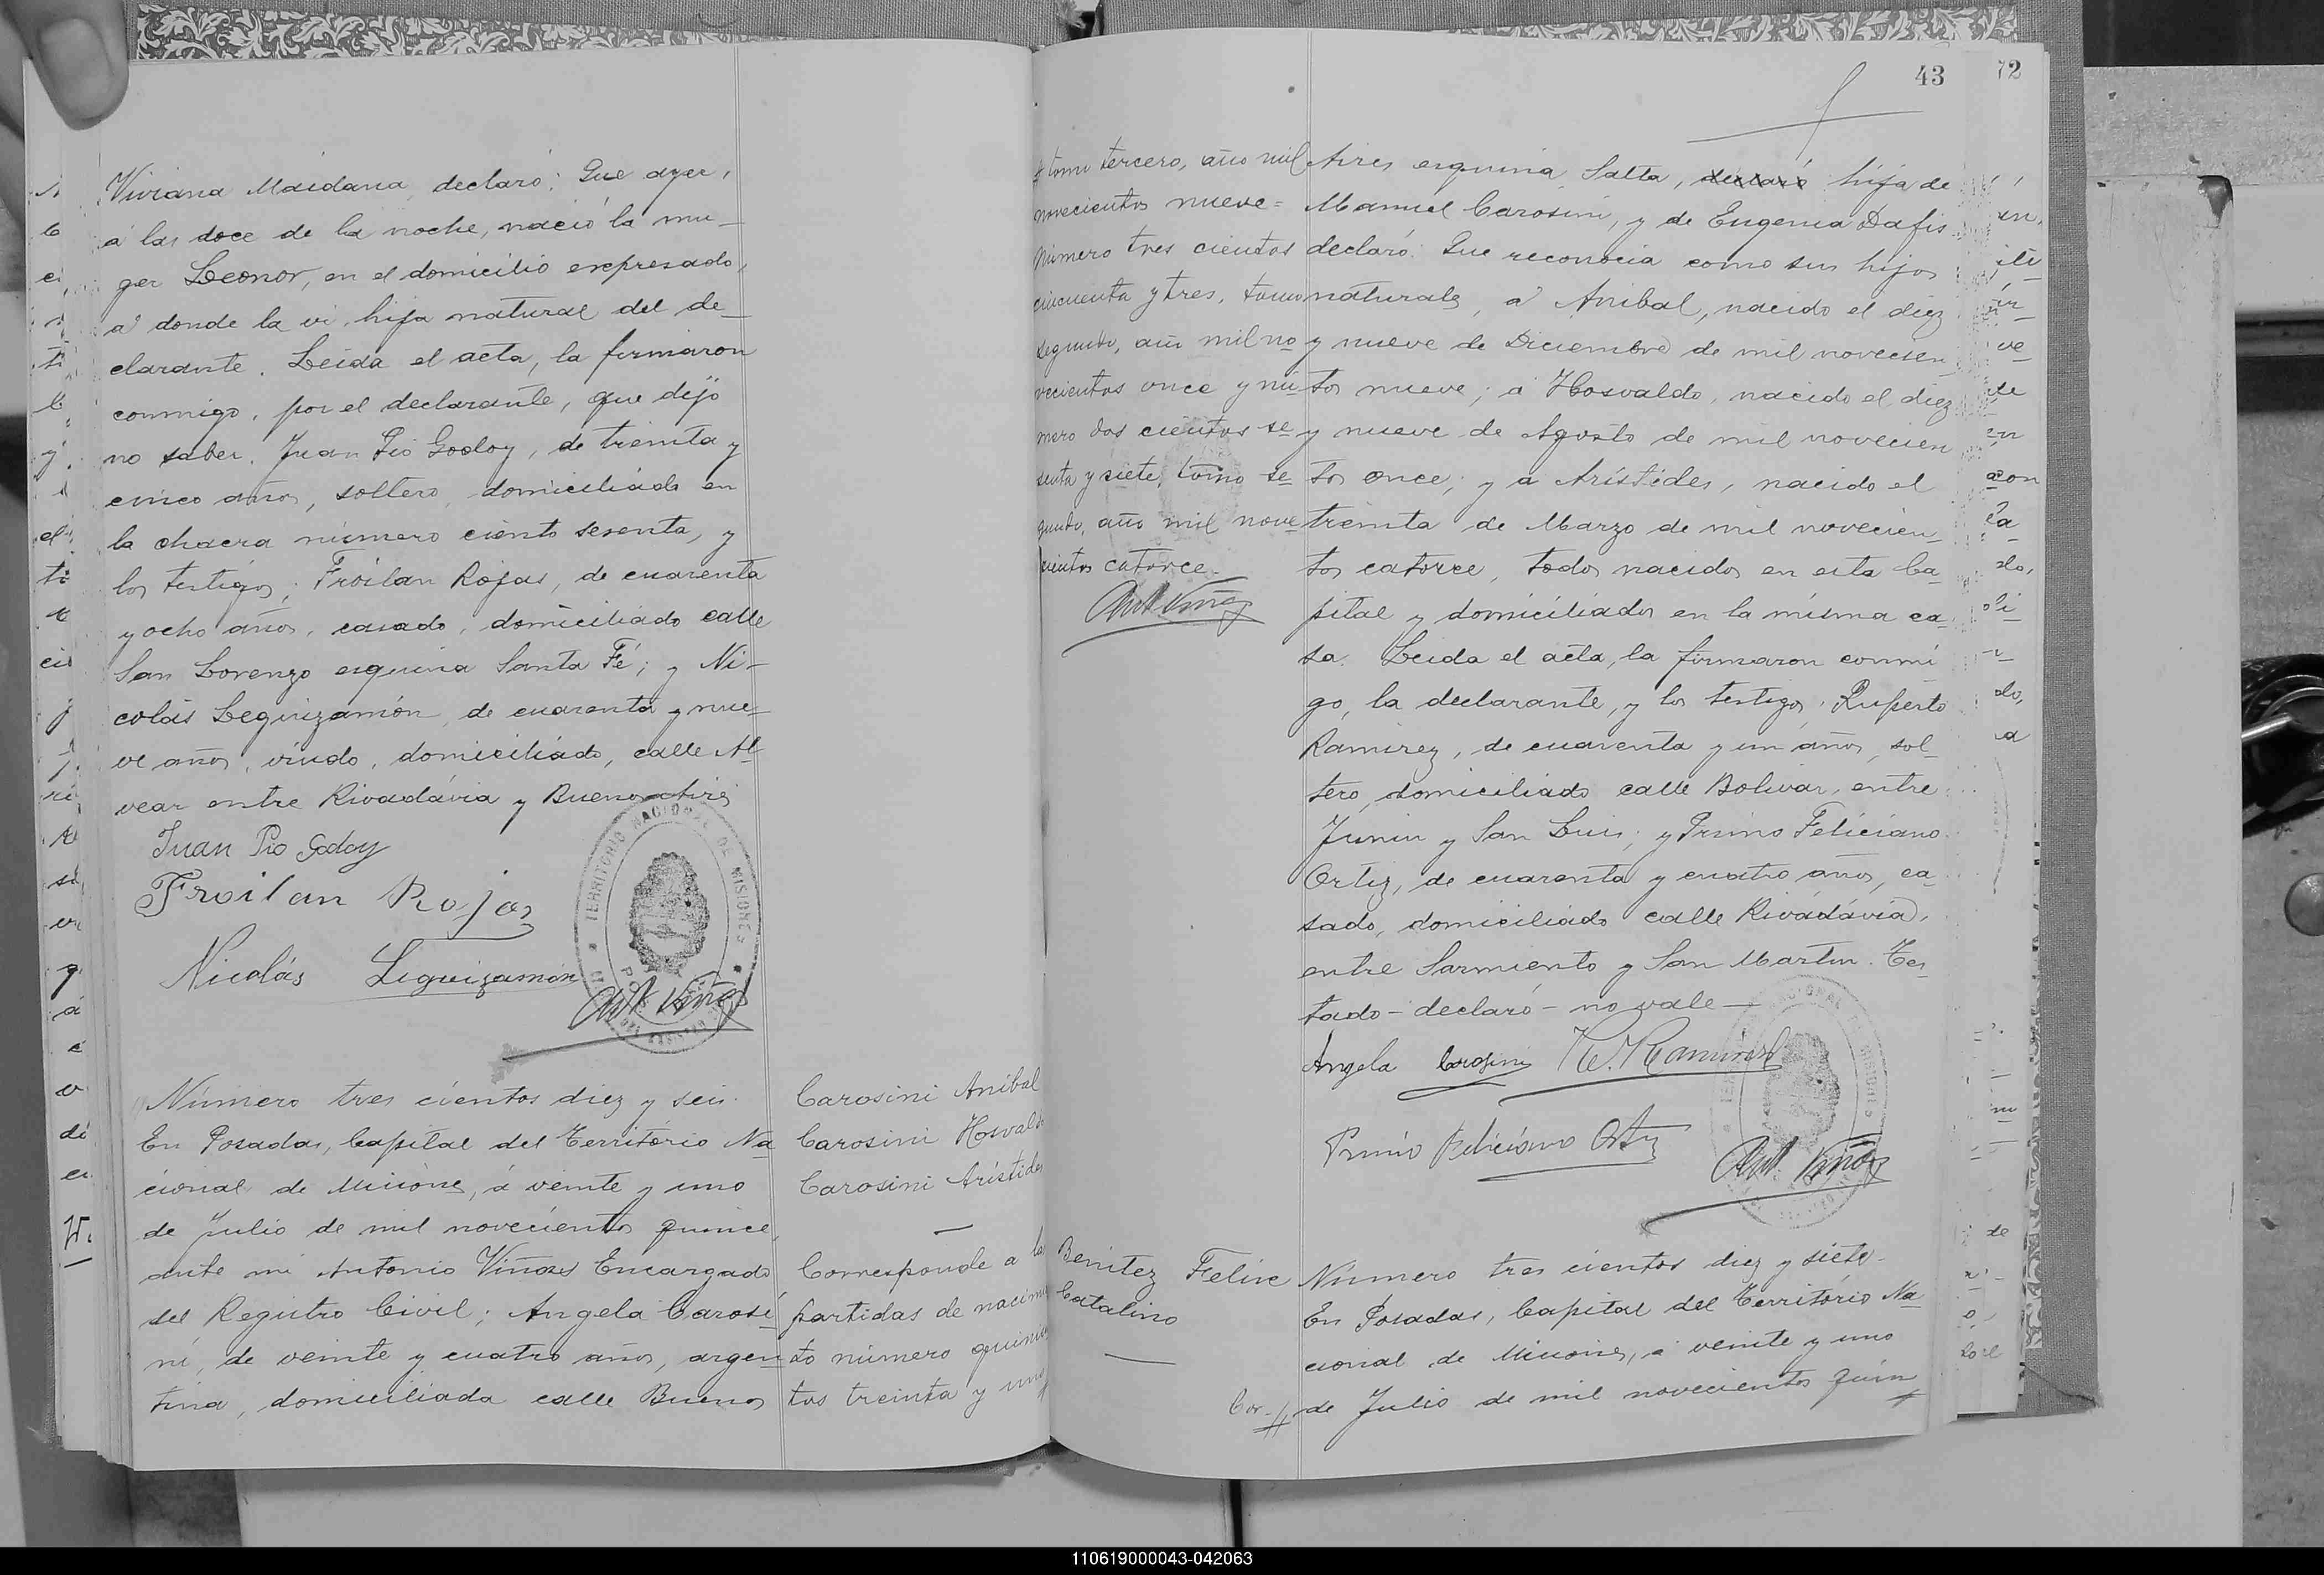 Viviana Maidana, declaró: Que ayer,
á las doce de la noche, nació la mu-
ger Leonor, en el domicilio expresado,
a donde la vi, hija natural del de-
clarante. Leida el acta, la firmaron
conmigo, por el declarante, que dijo
no saber, Juan Pio Godoy, de treinta y
cinco años, soltero, domiciliado en
la chacra número ciento sesenta, y
los testigos; Froilan Rojas, de cuarenta
y ocho años, casado, domiciliado calle
San Lorenzo esquina Santa Fé; y Ni-
colás Leguizamón, de cuarenta y nue-
ve años, viudo, domiciliado, calle Al-
vear entre Rivadavia y Buenos Aires
Juan Pio Godoy
Froilan Rojas
Nicolás Leguizamón
TERRITORIO NACIONAL DE MISIONES
Ant. Viñas
Número tres cientos diez y seis.
En Posadas, Capital del Territorio Na
cional de Misiones, á veinte y uno
de Julio de mil novecientos quince,
ante mi Antonio Viñas Encargado
del Registro Civil; Angela Carosi-
ni, de veinte y cuatro años, argen-
tina, domiciliada calle Buenos
Carosini Anibal
Carosini Hosvaldo
Carosini Arístides
Corresponde a las
partidas de nacimien
to número quinien
tos treinta y uno
43
72
tomo tercero, año mil
novecientos nueve=
Número tres cientos
cincuenta y tres, tomo
segundo, año mil no-
vecientos once y nú-
mero dos cientos se-
senta y siete, tomo se-
gundo, año mil nove-
cientos catorce.
Ant. Viñas
Aires esquina Salta, declaró hija de
Manuel Carosini, y de Eugenia Dafis
declaró: Que reconocia como sus hijos
naturales, a Anibal, nacido el diez
y nueve de Diciembre de mil novecien
tos nueve; á Hosvaldo, nacido el diez
y nueve de Agosto de mil novecien
tos once; y a Arístides, nacido el
treinta de Marzo de mil novecien-
tos catorce, todos nacidos en esta Ca-
pital y domiciliados en la misma ca-
sa. Leida el acta, la firmaron conmi
go, la declarante, y los testigos. Ruperto
Ramirez, de cuarenta y un años, sol-
tero, domiciliado calle Bolivar, entre
Junin y San Luis; y Primo Feliciano
Ortiz, de cuarenta y cuatro años, ca-
sado, domiciliado calle Rivadavia,
entre Sarmiento y San Martin. Tes-
tado - declaró - no vale -
Angela Carosini R. Ramirez
Primo Feliciano Ortiz
Ant. Viñas
Benitez Felix
Catalino
Cor-
Número tres cientos diez y siete.
En Posadas, Capital del Territorio Na-
cional de Misiones, á veinte y uno
de Julio de mil novecientos quin
110619000043-042063